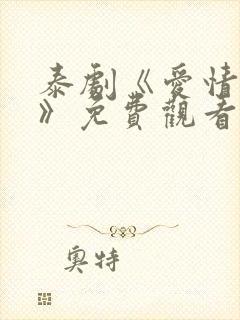 泰劇《愛情
》免費觀看
奧特